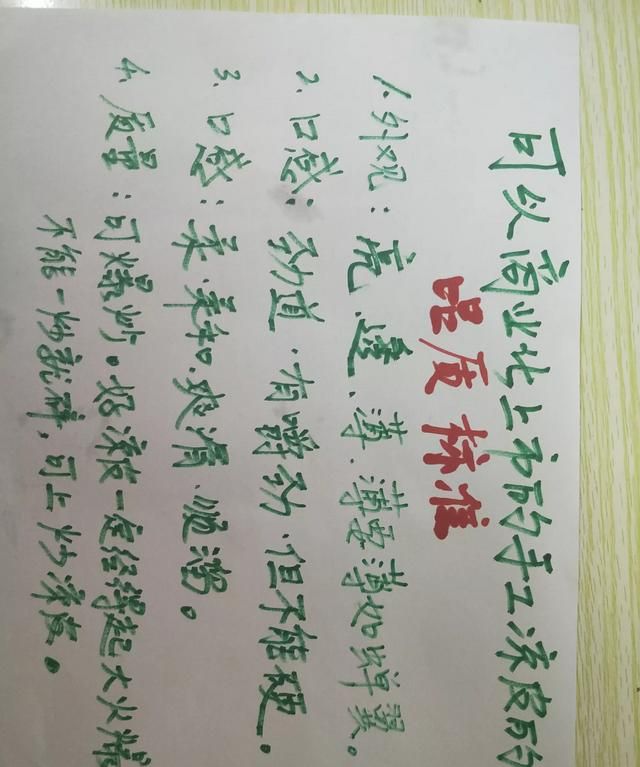 可以商业化上市的手工凉皮的
品质标准
1.外观：亮.透.薄.薄要薄如蝉翼。
2.口感：劲道.有嚼劲.但不能硬。
3.口感：柔.柔和.爽滑.顺溜。
4.质量：可爆炒。好凉皮一定经得起大火爆
不能一炒就碎，可上炒凉皮。